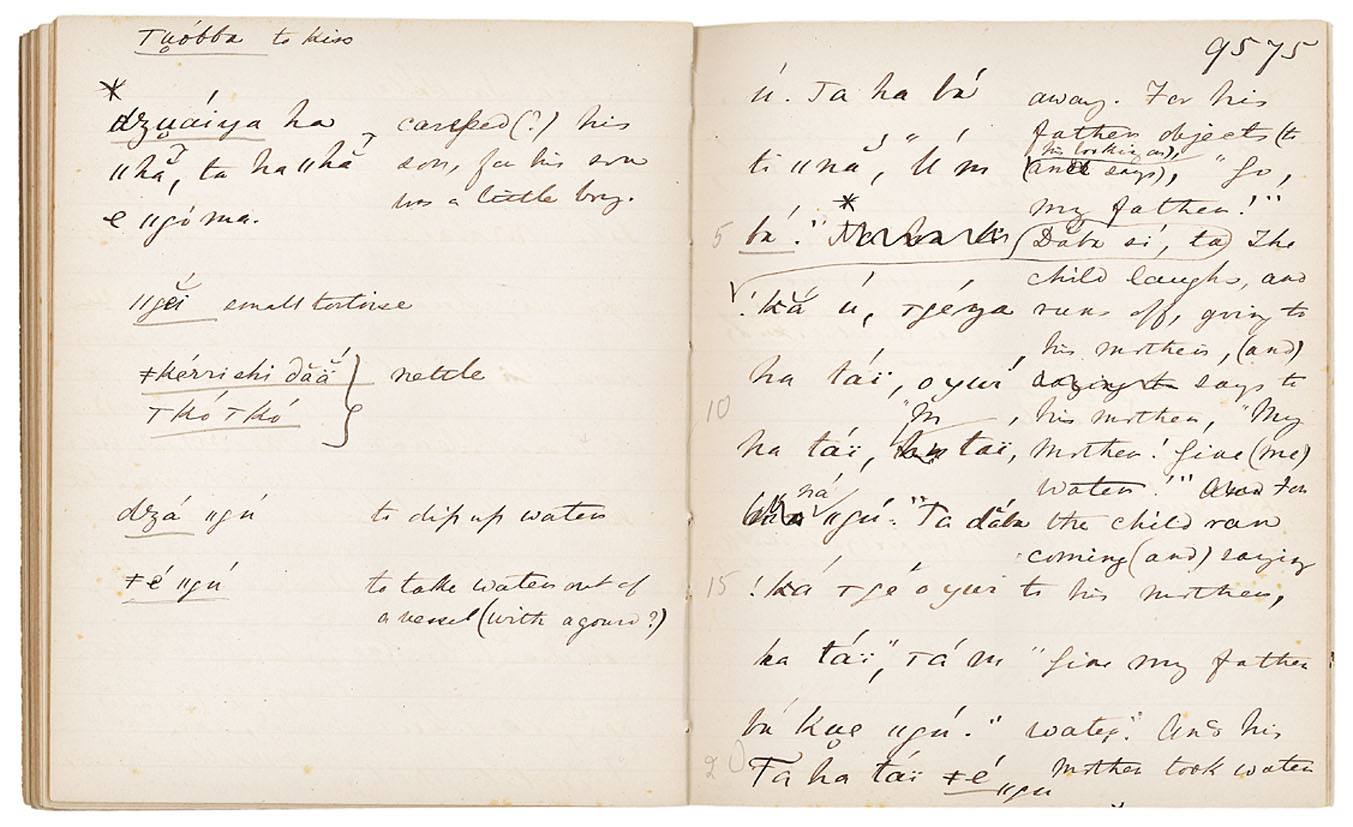 Tu̥óbba to kiss
*
dzu̥áiya ha caressed(?) his
ǁhã̌, ta ha ǁhã̌ son, for his son
e ǁgóma. was a little boy.
ǁgĕ́i small tortoise
ǂkérrishi dä̌ä̌ } nettle
Tkó Tkó
dzá ǁgú to dip up water
ǂé ǁgú to take water out of
a vessel (with a gourd?)
9575
ú. Ta ha bá away. For his
father objects (to
his looking on),
ti ǁnã̌, "Ú m (and says), "Go,
my father!"
*
5 bá." (Dăba si, ta) The
child laughs, and
!kã̌ ú, Tgéya runs off, going to
his mother, (and)
ha táï, o gu̥i saying to says to
10 "M his mother, "My
ha táï, táï, mother! Give (me)
ná water!" For
ǁgú." Ta dăba the child ran
coming (and) saying
15 !ká Tgé o gu̥i to his mother,
ha táï, "Tá m "Give my father
bá kue ǁgú." water." And his
20 Ta ha táï ǂé mother took water
ǁgu